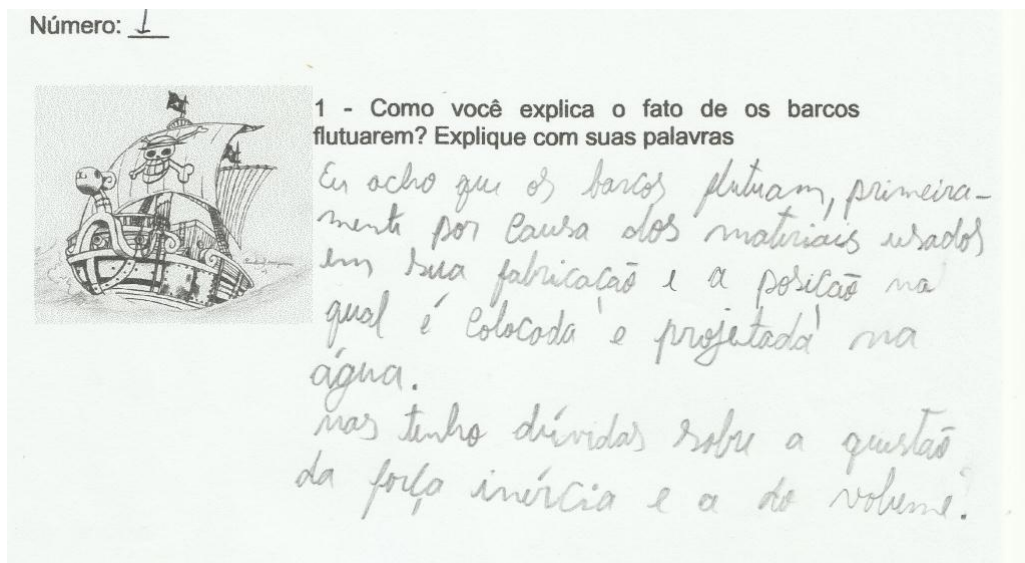 Número: 1
1 - Como você explica o fato de os barcos
flutuarem? Explique com suas palavras
Eu acho que os barcos flutuam, primeira-
mente por causa dos materiais usados
em sua fabricação e a posição na
qual é colocada e projetada na
água.
mas tenho dúvidas sobre a questão
da força inércia e a do volume.